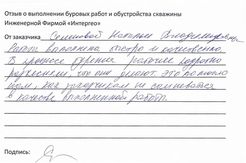 Отзыв о выполнении буровых работ и обустройства скважины
Инженерной Фирмой «Интергео»
От заказчика Семеновой Натальи Владимировны
Работа выполнена быстро и качественно.
В процессе бурения рабочие подробно
разъясняли, что они делают. Это помогло
нам, как заказчикам не сомневаться
в качестве выполненной работы.
Подпись: